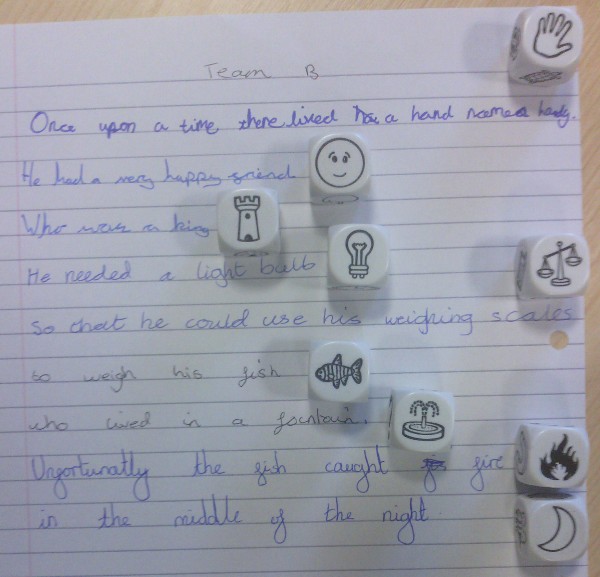 Team B
Once upon a time there lived a hand named handy.
He had a very happy friend
Who was a king
He needed a light bulb
So that he could use his weighing scales
to weigh his fish
who lived in a fountain.
Unfortunatly the fish caught fire
in the middle of the night.